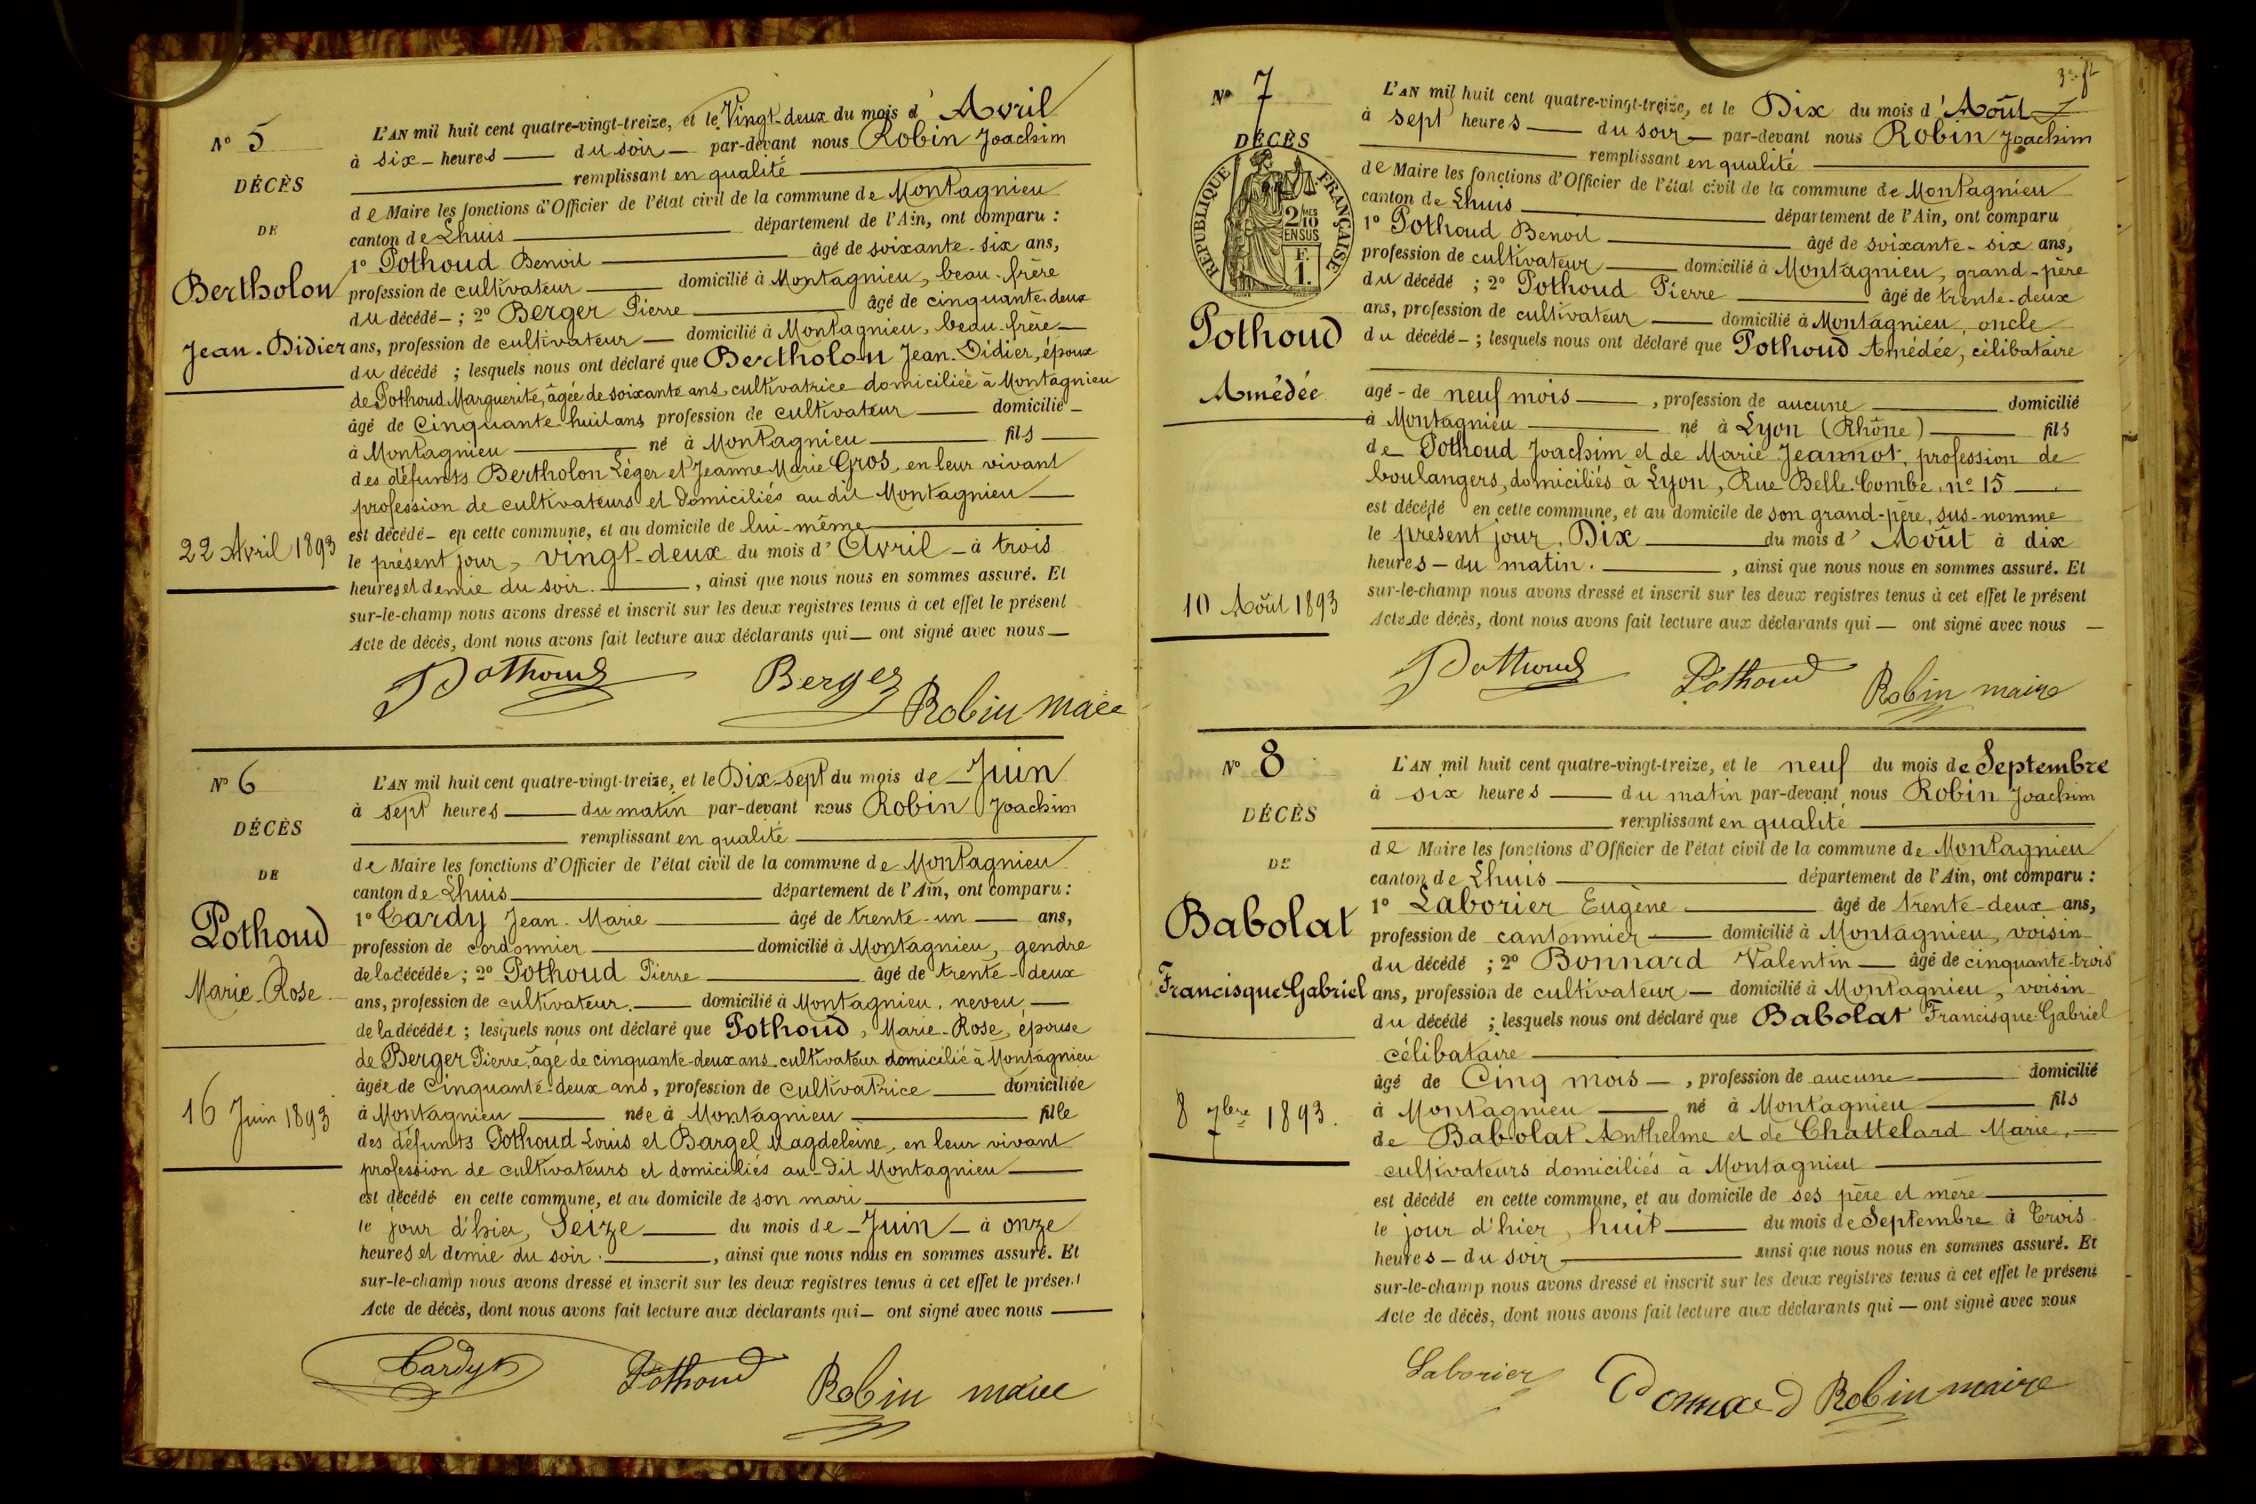 Nº 5
DÉCÈS
DE
Bertholon
Jean-Didier
22 Avril 1893
L'AN mil huit cent quatre-vingt-treize, et le Vingt-deux du mois d'Avril
à six heures du soir par-devant nous Robin Joachim
remplissant en qualité
de Maire les fonctions d'Officier de l'état civil de la commune de Montagnieu
canton de Lhuis département de l'Ain, ont comparu :
1º Pothoud Benoit âgé de soixante-six ans,
profession de cultivateur domicilié à Montagnieu, beau-frère
du décédé ; 2º Berger Pierre âgé de cinquante-deux
ans, profession de cultivateur domicilié à Montagnieu, beau-frère
du décédé ; lesquels nous ont déclaré que Bertholon Jean-Didier, époux
de Pothoud Marguerite, âgée de soixante ans cultivatrice domiciliée à Montagnieu
âgé de Cinquante-huit ans profession de cultivateur domicilié
à Montagnieu né à Montagnieu fils
des défunts Bertholon Léger et Jeanne Marie Gros, en leur vivant
profession de cultivateurs et domiciliés au dit Montagnieu
est décédé en cette commune, et au domicile de lui-même
le présent jour, vingt-deux du mois d'Avril à trois
heures et demie du soir. , ainsi que nous nous en sommes assuré. Et
sur-le-champ nous avons dressé et inscrit sur les deux registres tenus à cet effet le présent
Acte de décès, dont nous avons fait lecture aux déclarants qui ont signé avec nous
Pothoud Berger Robin maire
Nº 6
DÉCÈS
DE
Pothoud
Marie-Rose
16 Juin 1893
L'AN mil huit cent quatre-vingt-treize, et le Dix-sept du mois de Juin
à sept heures du matin par-devant nous Robin Joachim
remplissant en qualité
de Maire les fonctions d'Officier de l'état civil de la commune de Montagnieu
canton de Lhuis département de l'Ain, ont comparu :
1º Cardy Jean-Marie âgé de trente-un ans,
profession de cordonnier domicilié à Montagnieu, gendre
de la décédée ; 2º Pothoud Pierre âgé de trente-deux
ans, profession de cultivateur domicilié à Montagnieu, neveu
de la décédée ; lesquels nous ont déclaré que Pothoud, Marie-Rose, épouse
de Berger Pierre, âgé de cinquante-deux ans cultivateur domicilié à Montagnieu
âgée de Cinquante-deux ans, profession de cultivatrice domiciliée
à Montagnieu née à Montagnieu fille
des défunts Pothoud Louis et Bargel Magdeleine, en leur vivant
profession de cultivateurs et domiciliés au-dit Montagnieu
est décédé en cette commune, et au domicile de son mari
le jour d'hier, Seize du mois de Juin à onze
heures et demie du soir. , ainsi que nous nous en sommes assuré. Et
sur-le-champ nous avons dressé et inscrit sur les deux registres tenus à cet effet le présent
Acte de décès, dont nous avons fait lecture aux déclarants qui ont signé avec nous
Cardy Pothoud Robin maire
Nº 7
DÉCÈS
RÉPUBLIQUE FRANÇAISE
2/10 MES
EN SUS
F.
1.
Pothoud
Amédée
10 Août 1893
L'AN mil huit cent quatre-vingt-treize, et le Dix du mois d'Août
à sept heures du soir par-devant nous Robin Joachim
remplissant en qualité
de Maire les fonctions d'Officier de l'état civil de la commune de Montagnieu
canton de Lhuis département de l'Ain, ont comparu
1º Pothoud Benoit âgé de soixante-six ans,
profession de cultivateur domicilié à Montagnieu, grand-père
du décédé ; 2º Pothoud Pierre âgé de trente-deux
ans, profession de cultivateur domicilié à Montagnieu, oncle
du décédé ; lesquels nous ont déclaré que Pothoud Amédée, célibataire
agé de neuf mois , profession de aucune domicilié
à Montagnieu né à Lyon (Rhône) fils
de Pothoud Joachim et de Marie Jeannot, profession de
boulangers, domiciliés à Lyon, Rue Belle-Combe, nº 15
est décédé en cette commune, et au domicile de son grand-père, sus-nommé
le présent jour, Dix du mois d'Août à dix
heures du matin. , ainsi que nous nous en sommes assuré. Et
sur-le-champ nous avons dressé et inscrit sur les deux registres tenus à cet effet le présent
Acte de décès, dont nous avons fait lecture aux déclarants qui ont signé avec nous
Pothoud Pothoud Robin maire
Nº 8
DÉCÈS
DE
Babolat
Francisque-Gabriel
8 7bre 1893.
L'AN mil huit cent quatre-vingt-treize, et le neuf du mois de Septembre
à six heures du matin par-devant nous Robin Joachim
remplissant en qualité
de Maire les fonctions d'Officier de l'état civil de la commune de Montagnieu
canton de Lhuis département de l'Ain, ont comparu :
1º Laborier Eugène âgé de trente-deux ans,
profession de cantonnier domicilié à Montagnieu, voisin
du décédé ; 2º Bonnard Valentin âgé de cinquante-trois
ans, profession de cultivateur domicilié à Montagnieu, voisin
du décédé ; lesquels nous ont déclaré que Babolat Francisque-Gabriel
célibataire
âgé de Cinq mois , profession de aucune domicilié
à Montagnieu né à Montagnieu fils
de Babolat Anthelme et de Chattelard Marie,
cultivateurs domiciliés à Montagnieu
est décédé en cette commune, et au domicile de ses père et mère
le jour d'hier, huit du mois de Septembre à trois
heures du soir ainsi que nous nous en sommes assuré. Et
sur-le-champ nous avons dressé et inscrit sur les deux registres tenus à cet effet le présent
Acte de décès, dont nous avons fait lecture aux déclarants qui ont signé avec nous
Laborier Bonnard Robin maire